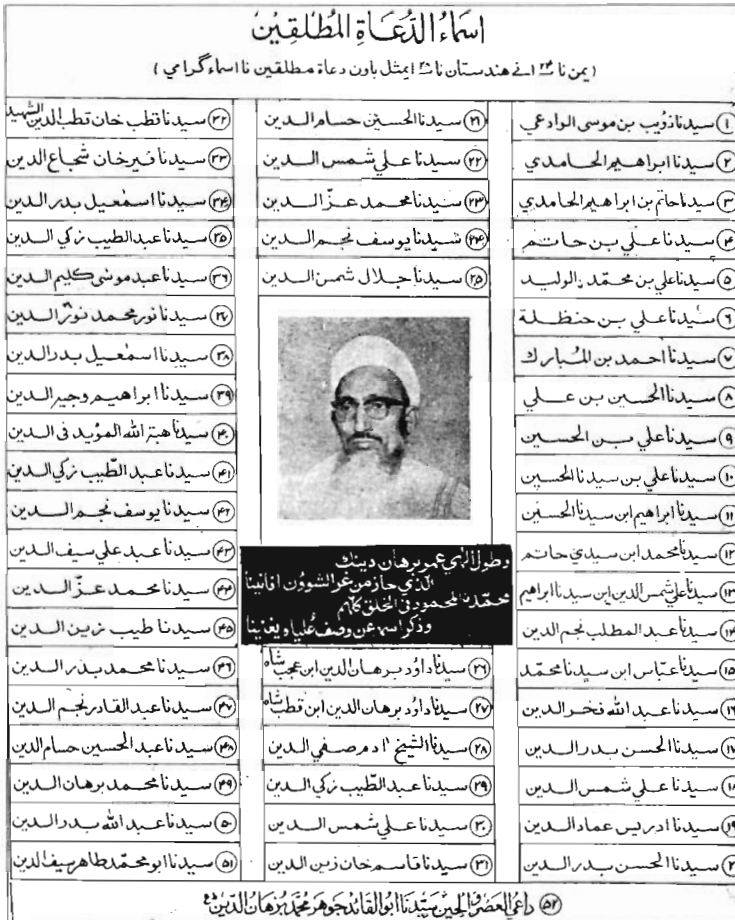 اسماء الدعاة المطلقين
(يمن نا ٢٤ انے هندستان نا ٢٨ ايمثل باون دعاة مطلقين نا اسماء گرامي)
١ سيدنا ذؤيب بن موسى الوادعي
٢ سيدنا ابراهيم الحامدي
٣ سيدنا حاتم بن ابراهيم الحامدي
٤ سيدنا علي بن حاتم
٥ سيدنا علي بن محمد الوليد
٦ سيدنا علي بن حنظلة
٧ سيدنا احمد بن المبارك
٨ سيدنا الحسين بن علي
٩ سيدنا علي بن الحسين
١٠ سيدنا علي بن سيدنا الحسين
١١ سيدنا ابراهيم ابن سيدنا الحسين
١٢ سيدنا محمد ابن سيدي حاتم
١٣ سيدنا علي شمس الدين ابن سيدنا ابراهيم
١٤ سيدنا عبد المطلب نجم الدين
١٥ سيدنا عباس ابن سيدنا محمد
١٦ سيدنا عبد الله فخر الدين
١٧ سيدنا الحسن بدر الدين
١٨ سيدنا علي شمس الدين
١٩ سيدنا ادريس عماد الدين
٢٠ سيدنا الحسن بدر الدين
٢١ سيدنا الحسين حسام الدين
٢٢ سيدنا علي شمس الدين
٢٣ سيدنا محمد عزّ الدين
٢٤ سيدنا يوسف نجم الدين
٢٥ سيدنا جلال شمس الدين
وطول الهي عمر برهان دينك
الذي حاز من غر الشؤون افانينا
محمد المحمود في الخلق كلهم
وذكر اسمه عن وصف علياه يغنينا
٢٦ سيدنا داود برهان الدين ابن عجب شاه
٢٧ سيدنا داود برهان الدين ابن قطب شاه
٢٨ سيدنا الشيخ ادم صفي الدين
٢٩ سيدنا عبد الطّيب زكي الدين
٣٠ سيدنا علي شمس الدين
٣١ سيدنا قاسم خان زين الدين
٣٢ سيدنا قطب خان قطب الدين الشهيد
٣٣ سيدنا فيرخان شجاع الدين
٣٤ سيدنا اسمعيل بدر الدين
٣٥ سيدنا عبد الطيب زكي الدين
٣٦ سيدنا عبد موسى كليم الدين
٣٧ سيدنا نور محمد نور الدين
٣٨ سيدنا اسمعيل بدر الدين
٣٩ سيدنا ابراهيم وجيه الدين
٤٠ سيدنا هبة الله المؤيد في الدين
٤١ سيدنا عبد الطّيب زكي الدين
٤٢ سيدنا يوسف نجم الدين
٤٣ سيدنا عبد علي سيف الدين
٤٤ سيدنا محمد عزّ الدين
٤٥ سيدنا طيب زين الدين
٤٦ سيدنا محمد بدر الدين
٤٧ سيدنا عبد القادر نجم الدين
٤٨ سيدنا عبد الحسين حسام الدين
٤٩ سيدنا محمد برهان الدين
٥٠ سيدنا عبد الله بدر الدين
٥١ سيدنا ابو محمد طاهر سيف الدين
٥٢ داعي العصر والحين سيدنا ابو القائد جوهر محمد برهان الدين